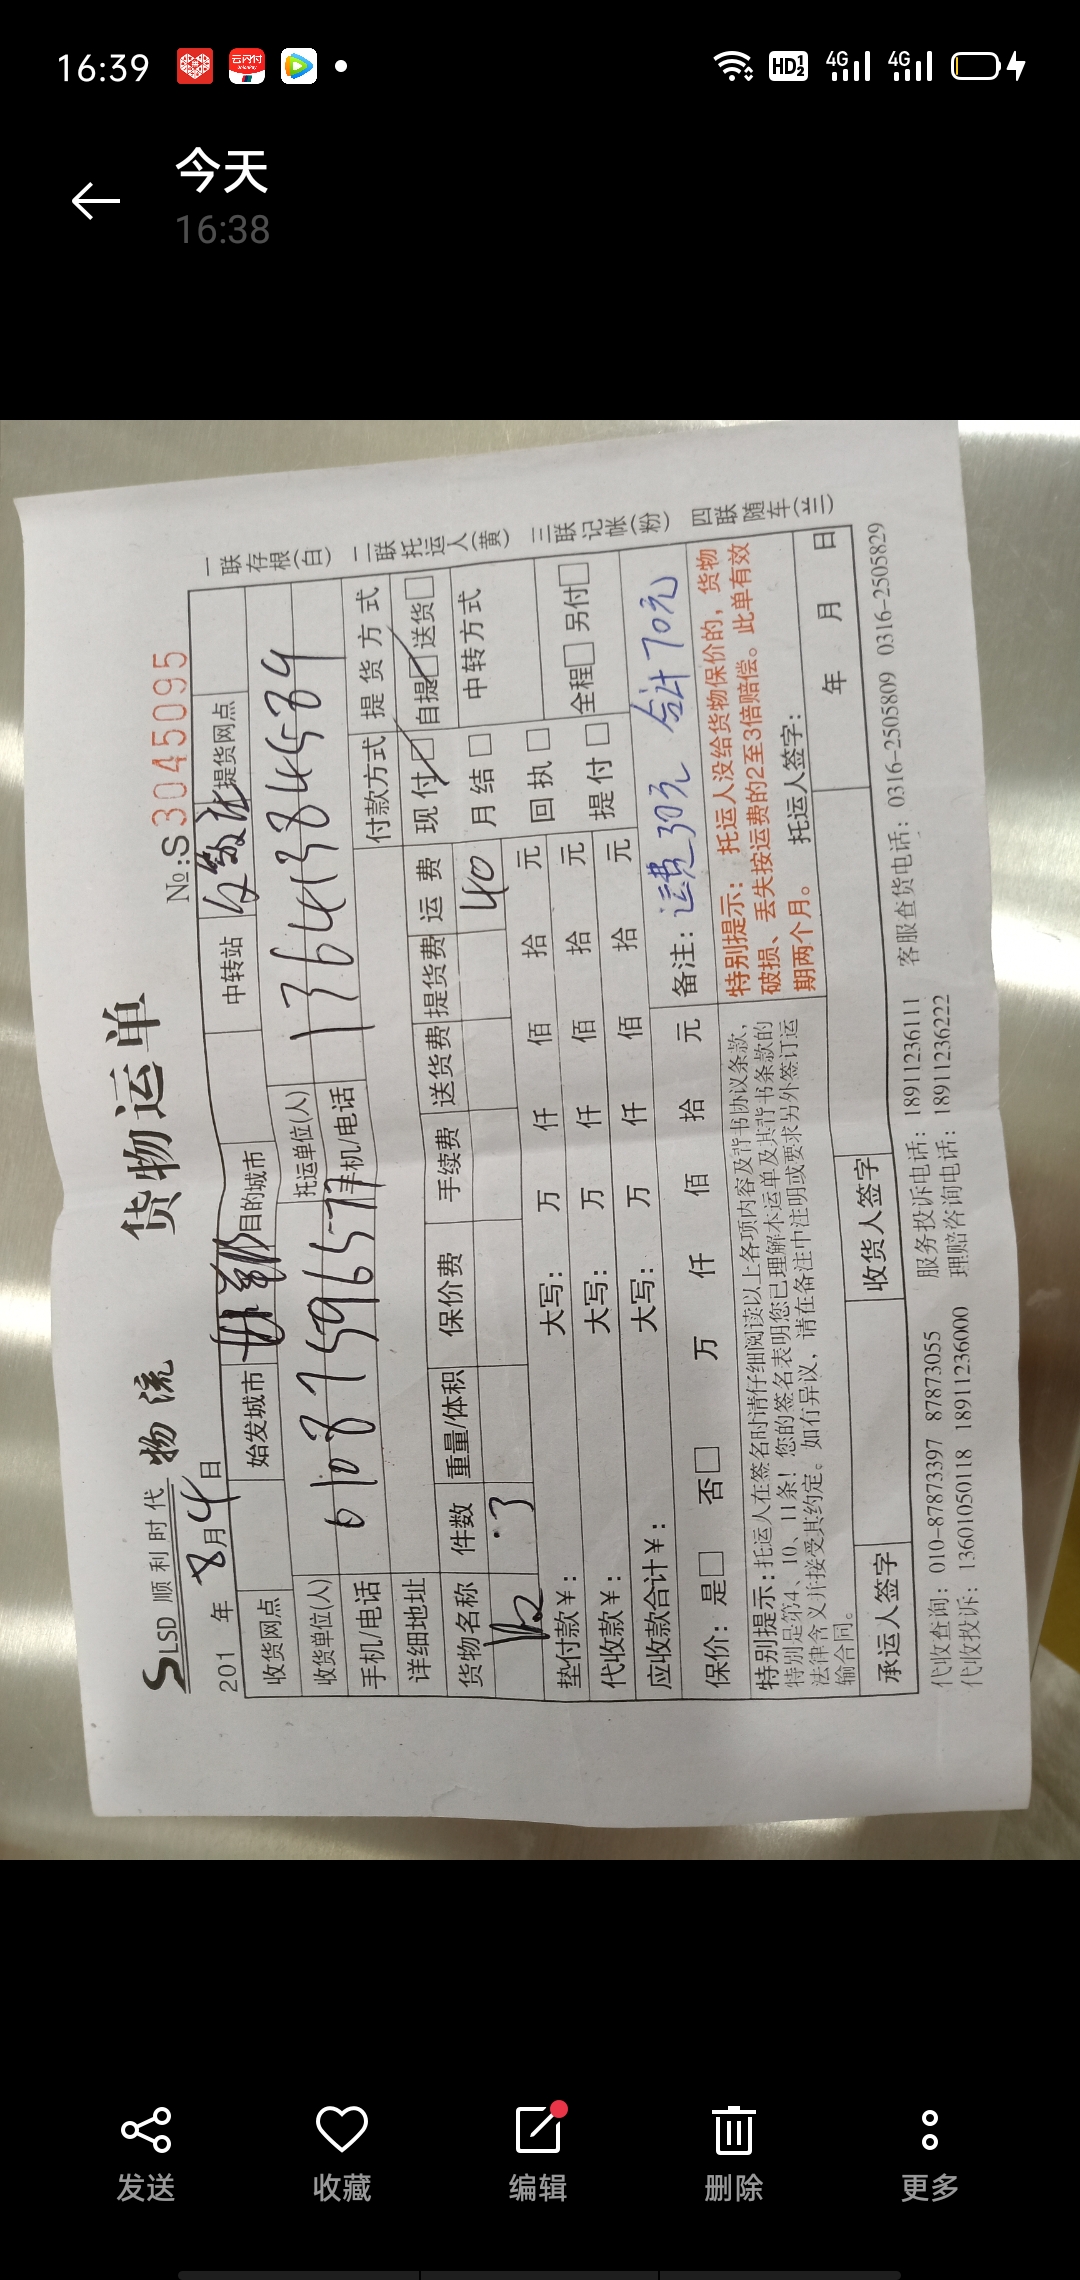 16:39
云闪付
HD 1 2
4G
4G
今天
16:38
SLSD 顺利时代 物流 货物运单 №:S 3045095
201 年 8月4日
收货网点 始发城市 目的城市 中转站 提货网点
收货单位(人) 托运单位(人)
手机/电话 手机/电话 13641384584
详细地址 付款方式 提货方式
货物名称 件数 重量/体积 保价费 手续费 送货费 提货费 运费 现付 自提 送货
3 40 月结 中转方式
垫付款¥: 大写: 万 仟 佰 拾 元 回执
代收款¥: 大写: 万 仟 佰 拾 元 提付 全程 另付
应收款合计¥: 大写: 万 仟 佰 拾 元
保价: 是 否 万 仟 佰 拾 元 备注: 运费30元 合计70元
特别提示:托运人在签名时请仔细阅读以上各项内容及背书协议条款,
特别是第4、10、11条!您的签名表明您已理解本运单及其背书条款的
法律含义并接受其约定。如有异议,请在备注中注明或要求另外签订运
输合同。
特别提示: 托运人没给货物保价的,货物
破损、丢失按运费的2至3倍赔偿。此单有效
期两个月。 托运人签字:
年 月 日
承运人签字 收货人签字
代收查询: 010-87873397 87873055 服务投诉电话: 18911236111 客服查货电话: 0316-2505809 0316-2505829
代收投诉: 13601050118 18911236000 理赔咨询电话: 18911236222
一联存根(白) 二联托运人(黄) 三联记帐(粉) 四联随车(兰)
发送 收藏 编辑 删除 更多